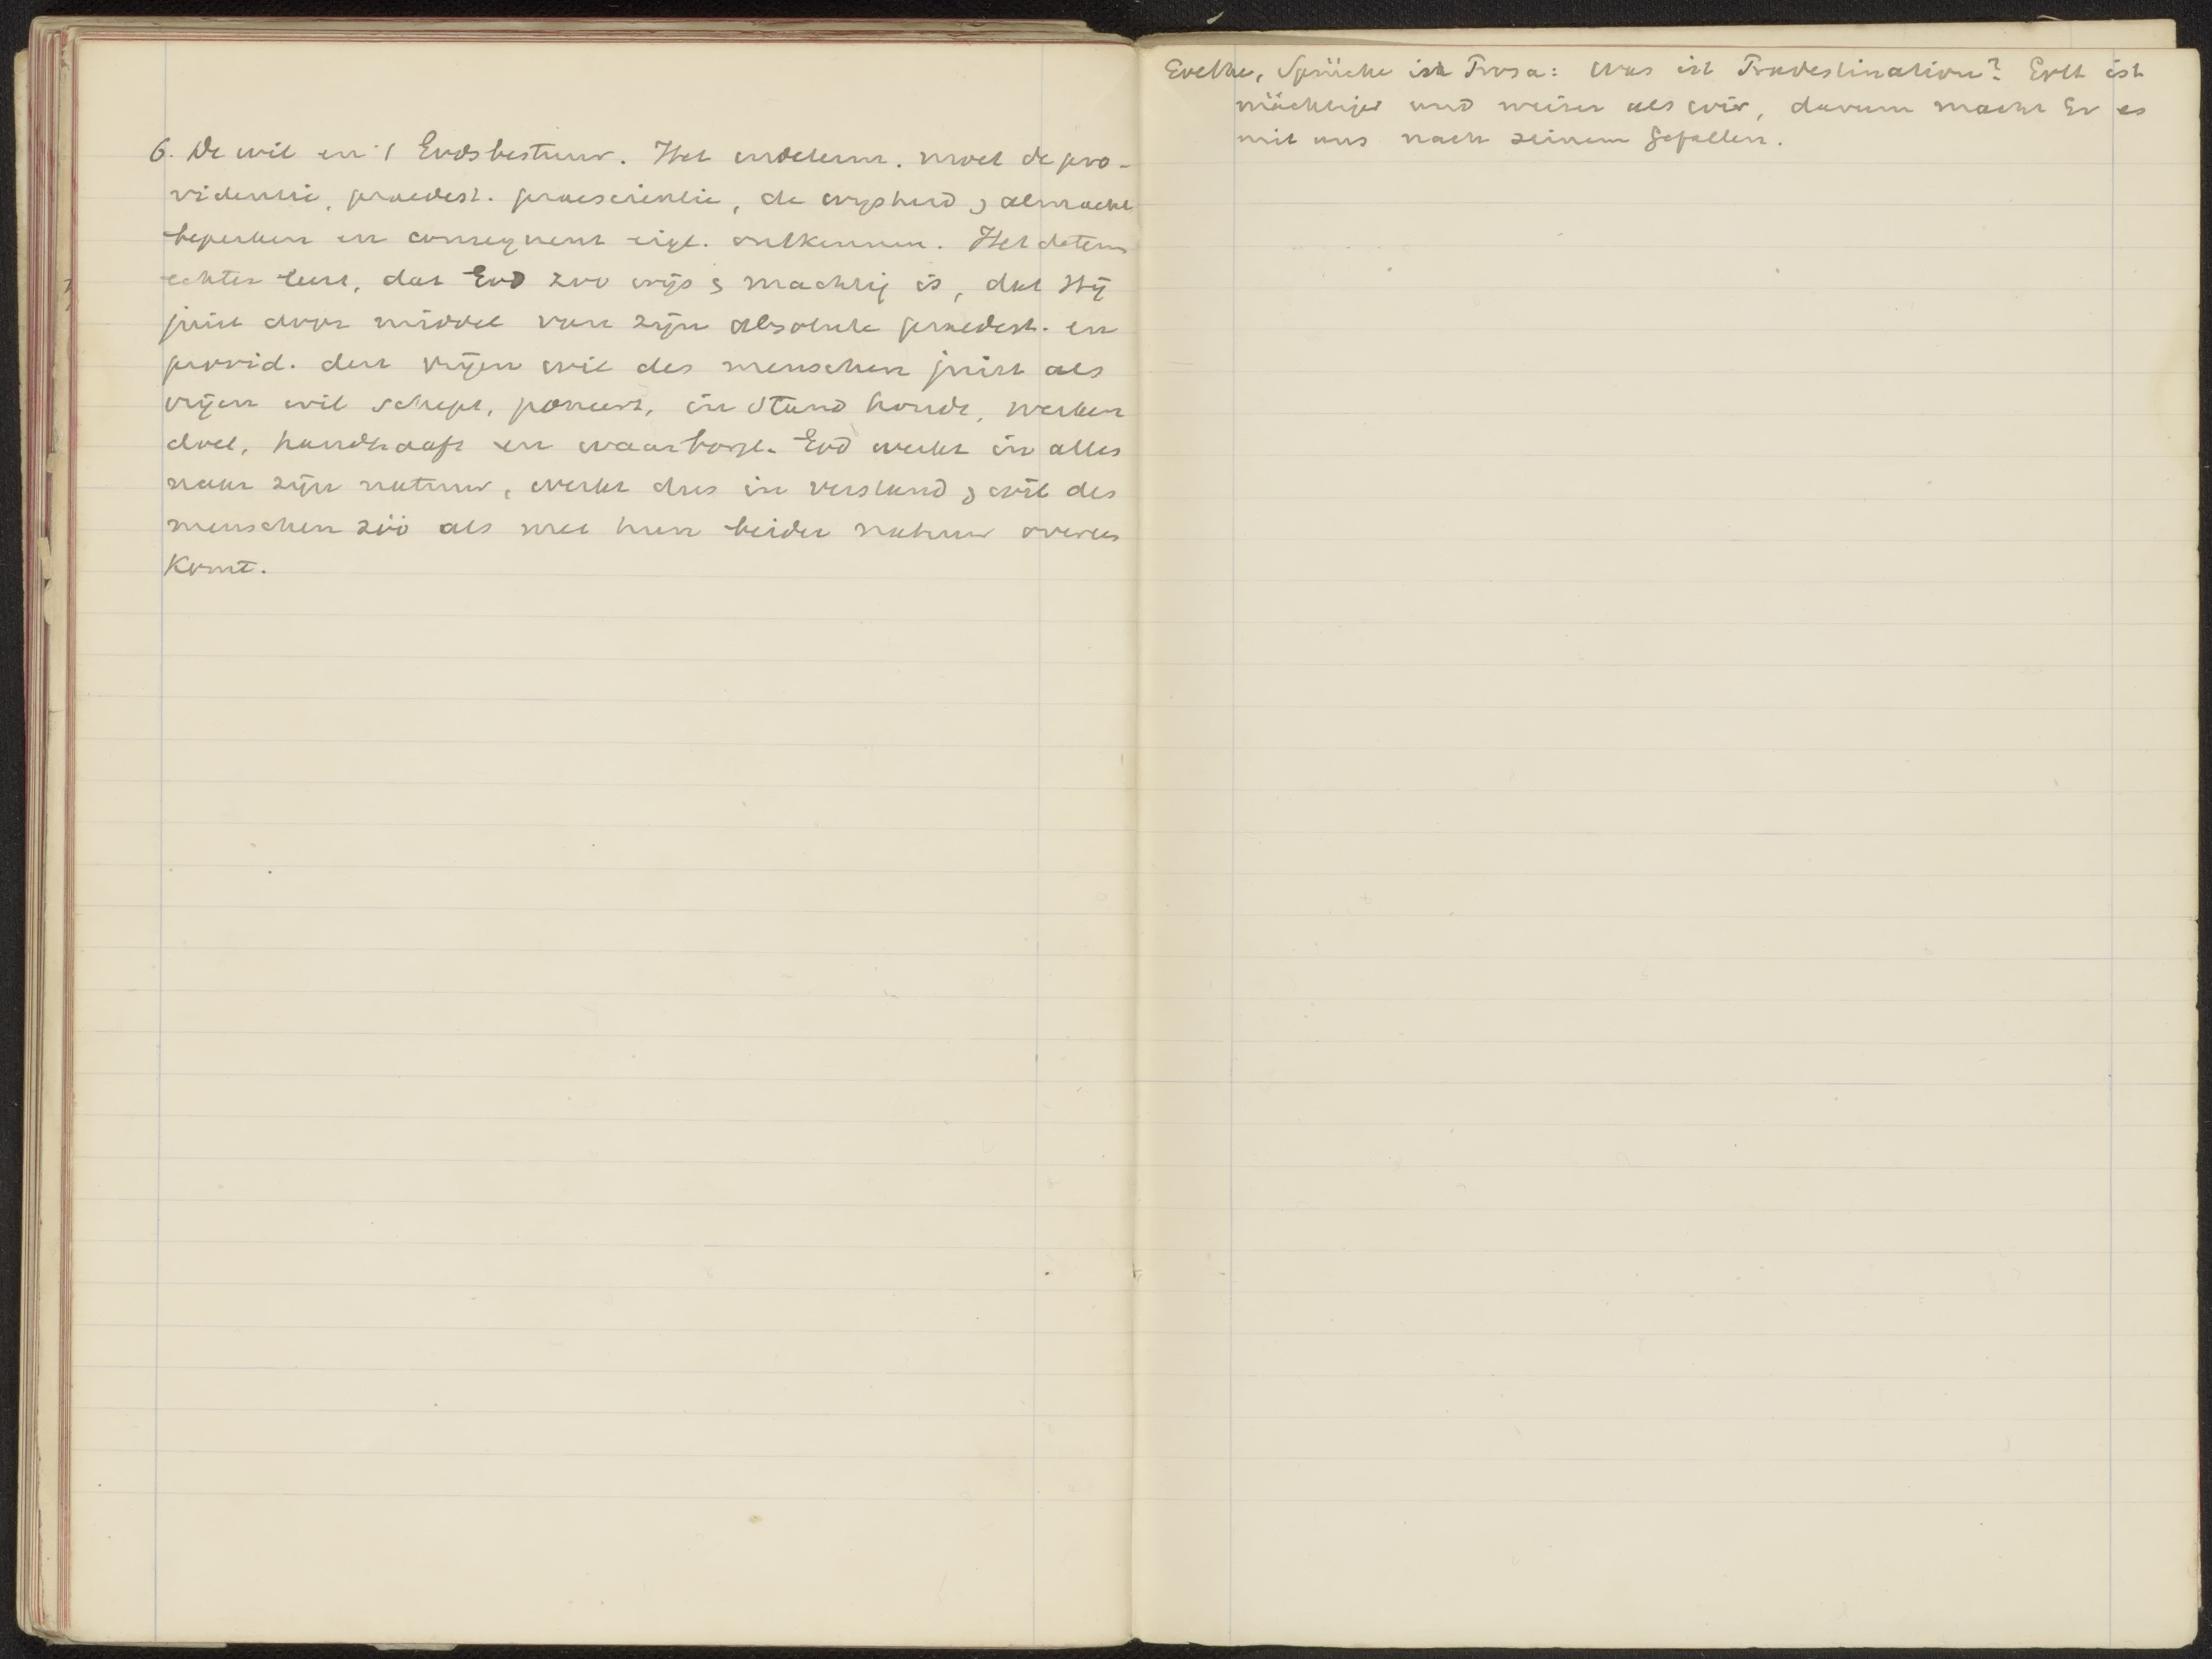 6. De wil en 't Godsbestuur. Het indeterm. moet de pro-
videntie, praedest. praescientie, de wysheid & almacht
beperken en consequent eigl. ontkennen. Het determ
echter leert, dat God zoo wijs & machtig is, dat Hij
juist door middel van zijn absolute praedest. en
provid. den vrijen wil des menschen juist als
vrijen wil schept, poneert, in stand houdt, werken
doet, handhaaft en waarborgt. God werkt in alles
naar zijn natuur, werkt dus in verstand & wil des
menschen zóó als met hun beider natuur overeen
komt.
Goethe, Sprüche in Prosa: Was ist Prädestination? Gott ist
mächtiger und weiser als wir, darum macht Er es
mit uns nach seinem Gefallen.